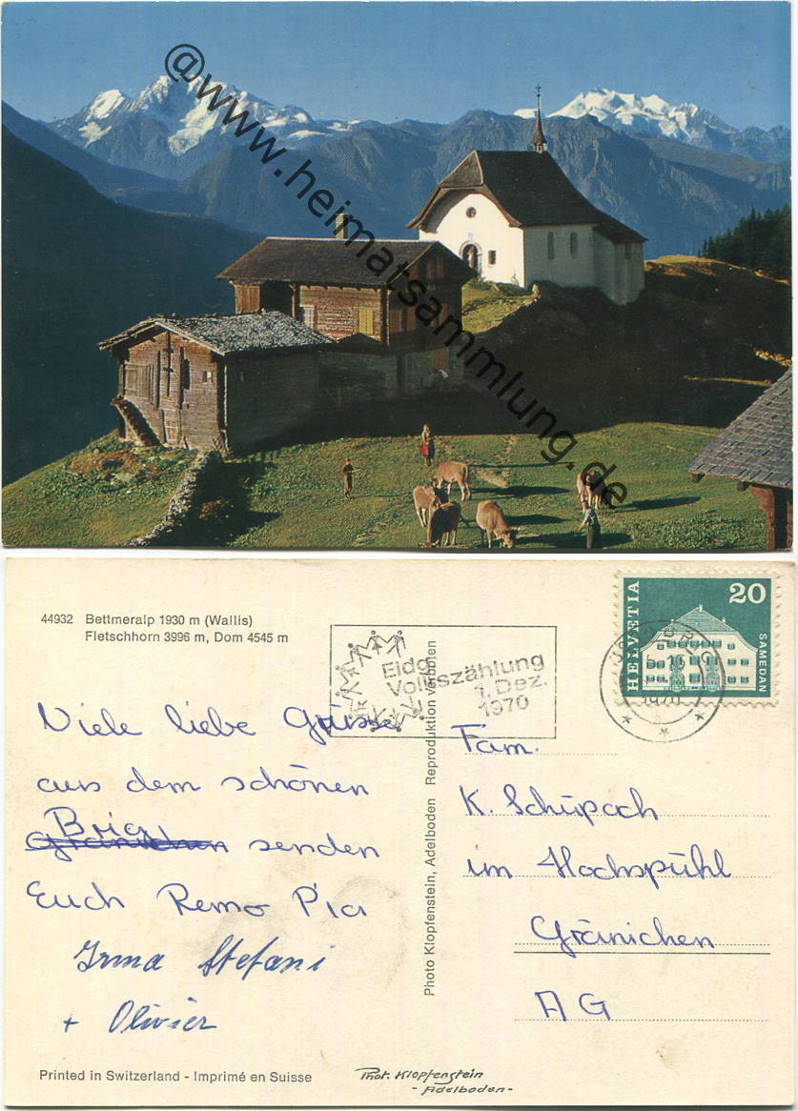 @www.heimatsammlung.de
44932 Bettmeralp 1930 m (Wallis)
Fletschhorn 3996 m, Dom 4545 m
Eidg.
Volkszählung
1. Dez.
1970
HELVETIA
20
SAMEDAN
1970
Viele liebe Grüsse
aus dem schönen
Brig
Gränichen senden
Euch Remo Pia
Irma Stefani
+ Olivier
Photo Klopfenstein, Adelboden Reproduktion verboten
Fam.
K. Schüpach
im Hochspühl
Gränichen
AG
Printed in Switzerland - Imprimé en Suisse
Phot. Klopfenstein
- Adelboden -